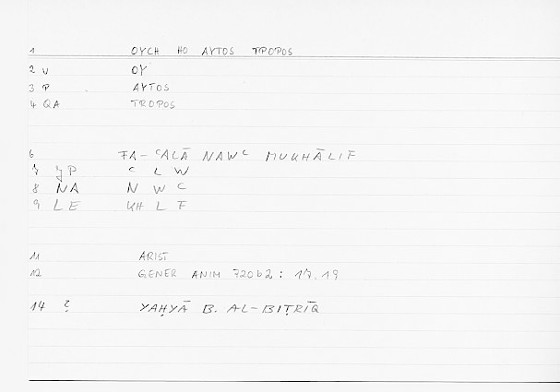 1 OYCH HO AYTOS TROPOS
2 V OY
3 P AYTOS
4 QA TROPOS
6 FA-ʿALĀ NAWʿ MUKHĀLIF
7 P ʿ L W
8 NA N W ʿ
9 LE KH L F
11 ARIST
12 GENER ANIM 720b2: 17.19
14 YAḤYĀ B. AL-BIṬRĪQ